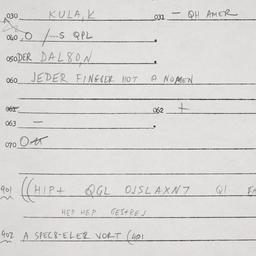 030 KULA,K 031 — QH AMER
040 .O /---S QPL
050 DER DAL8O,N
060 JEDER FINGER HOT A NOMEN
061 062 +
063 —
070 O
401 ((HIP+ QGL OJSLAXN7 QI
HEP HEP
402 A SPEC8-ELER VORT (401